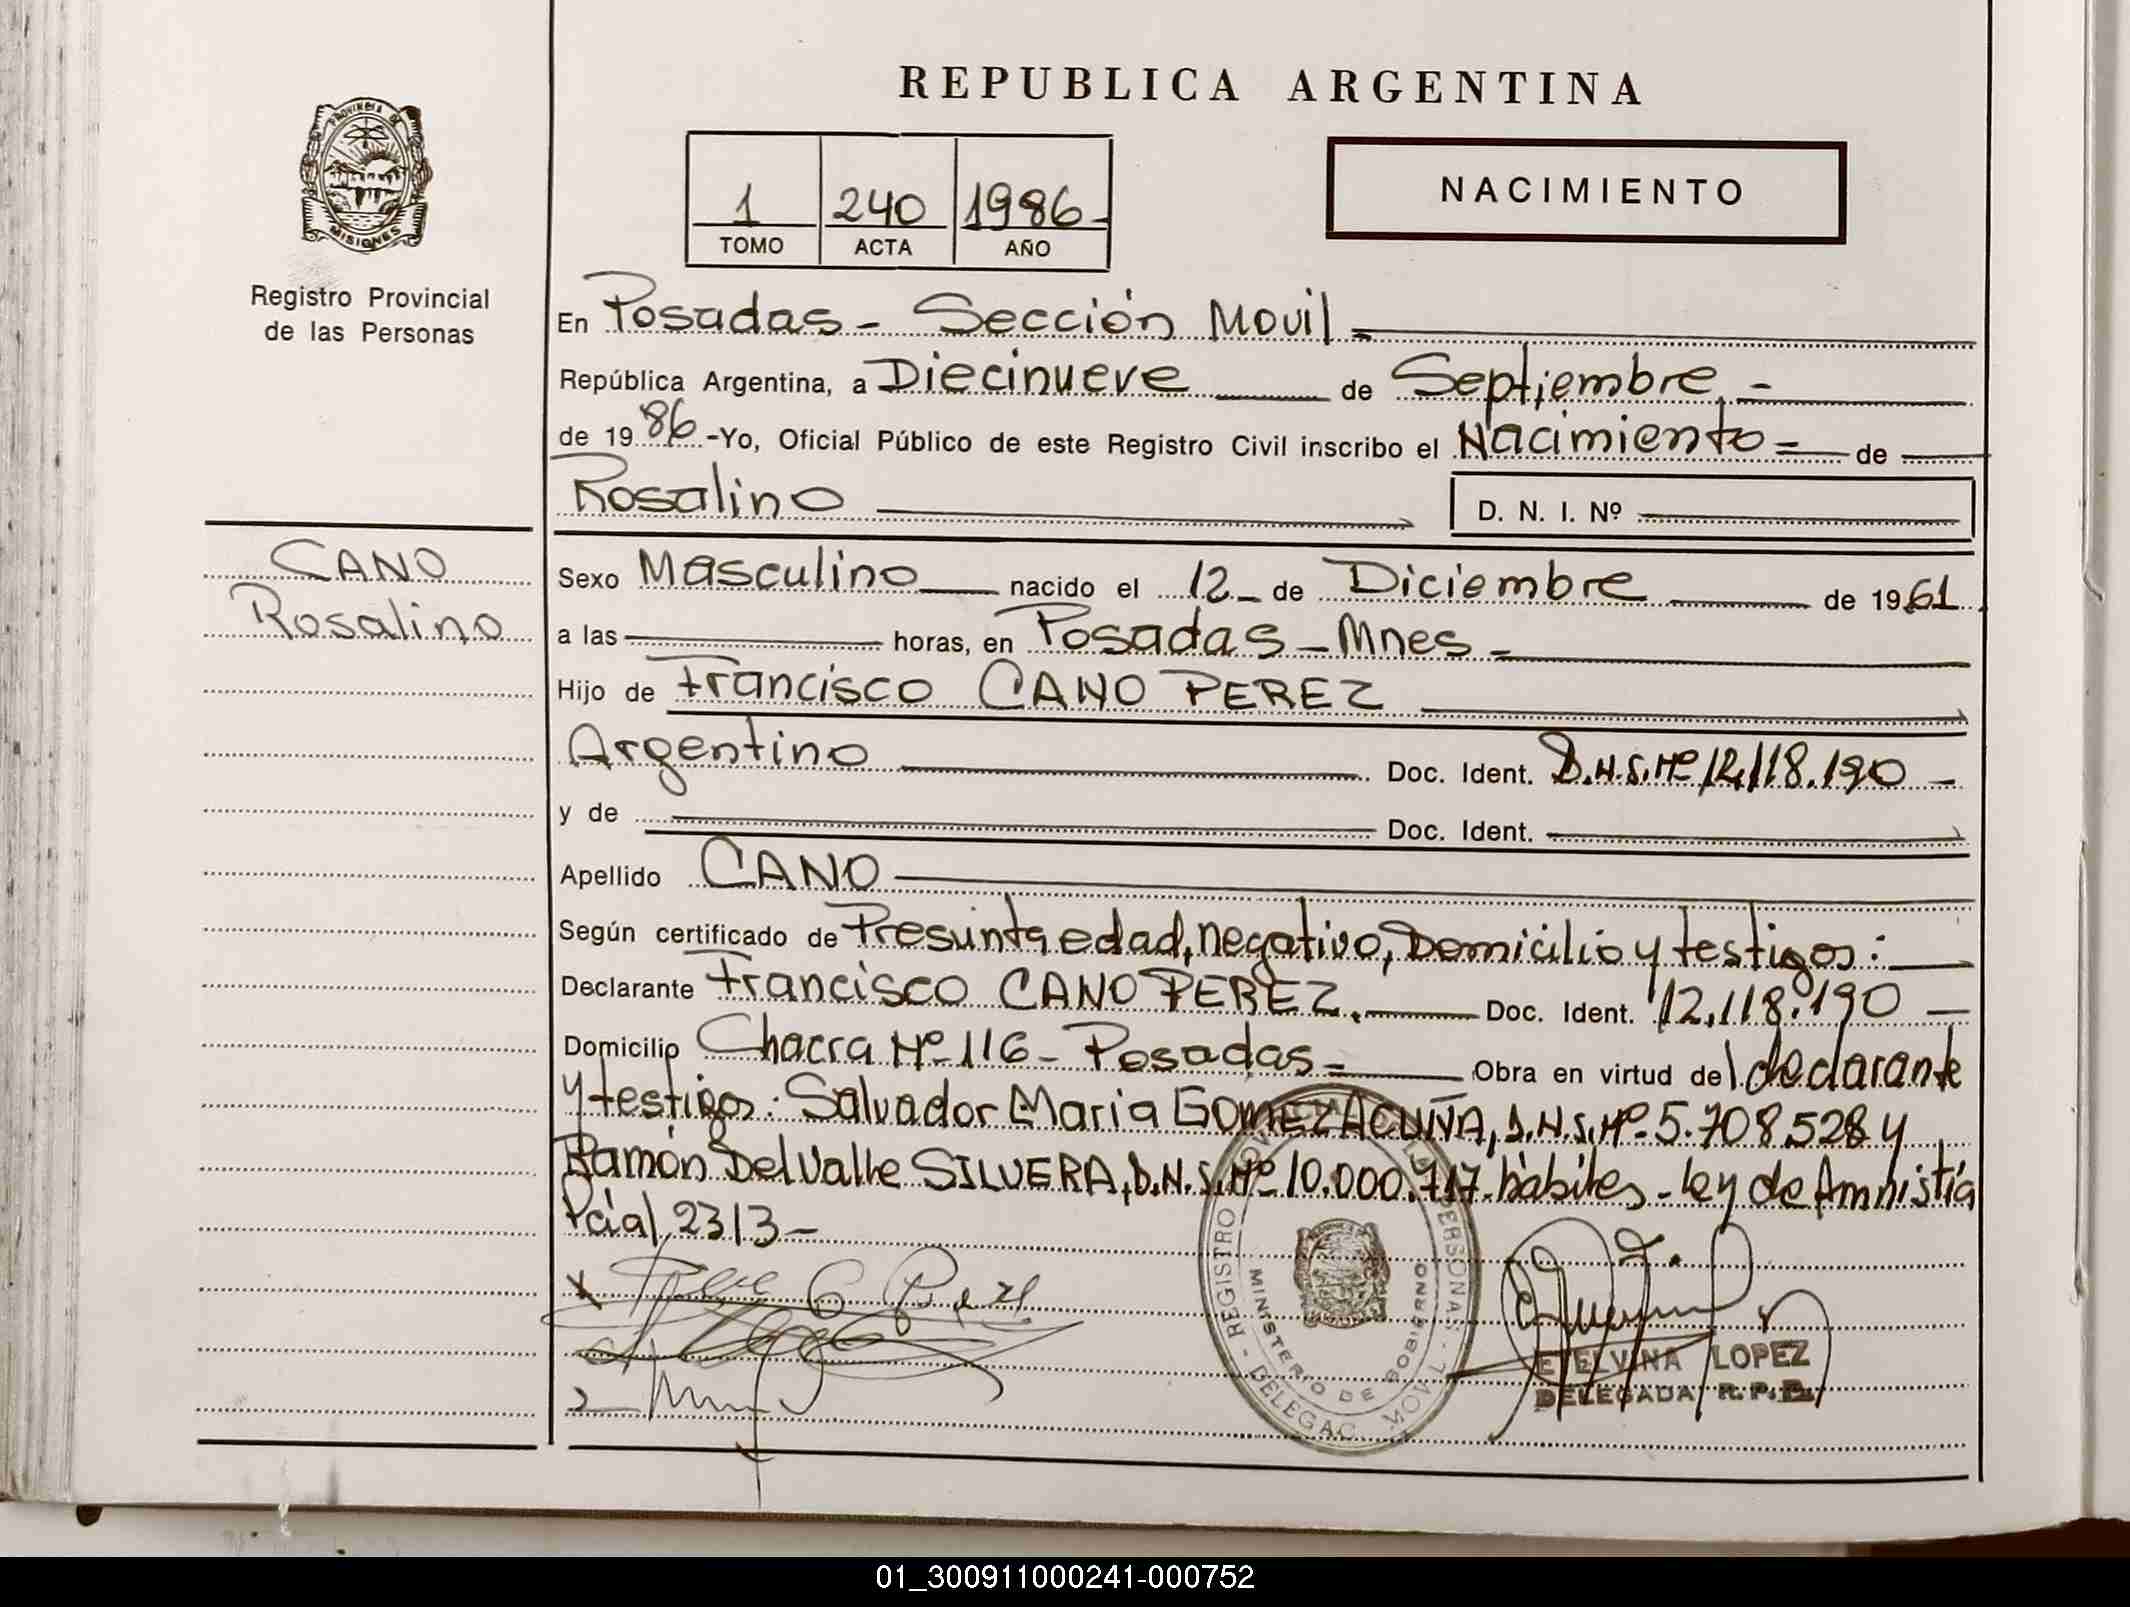 REPUBLICA ARGENTINA
PROVINCIA DE
MISIONES
Registro Provincial
de las Personas
1 240 1986-
TOMO ACTA AÑO
NACIMIENTO
En Posadas - Sección Movil -
República Argentina, a Diecinueve de Septiembre -
de 1986.-Yo, Oficial Público de este Registro Civil inscribo el Nacimiento - de
Rosalino D. N. I. Nº
CANO
Rosalino
Sexo Masculino nacido el 12 - de Diciembre de 1961
a las horas, en Posadas - Mnes -
Hijo de Francisco CANO PEREZ
Argentino Doc. Ident. D.N.I. Nº 12.118.190 -
y de Doc. Ident.
Apellido CANO
Según certificado de Presunta edad, negativo, Domicilio y testigos:
Declarante Francisco CANO PEREZ. Doc. Ident. 12.118.190 -
Domicilio Chacra Nº 116 - Posadas - Obra en virtud del declarante
y testigos: Salvador Maria GOMEZ ACUÑA, D.N.I. Nº 5.708.528 y
Ramón Del Valle SILVERA, D.N.I. Nº 10.000.717 - hábiles - Ley de Amnistía
Pcial 2313 -
REGISTRO PROVINCIAL DE LAS PERSONAS - DELEGAC. MOVIL -
MINISTERIO DE GOBIERNO
ETELVINA LOPEZ
DELEGADA R.P.P.
01_300911000241-000752